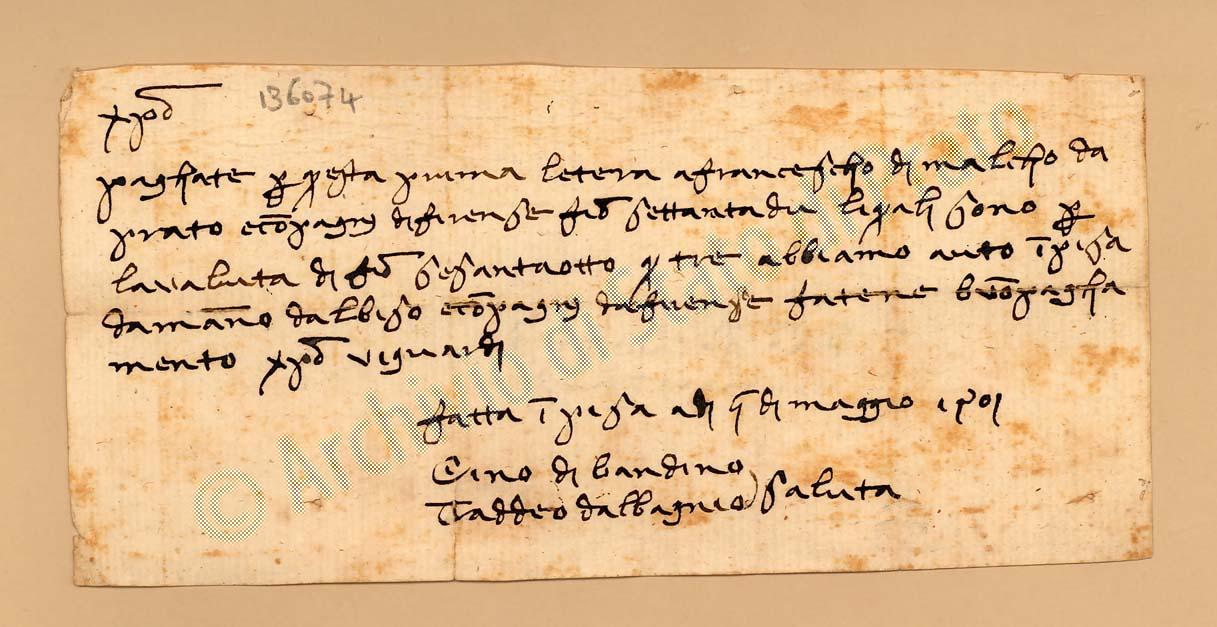 136074
xpō
paghate p questa prima letera a francescho di malcho da
prato e cōpagni di firense fiō settantadu li quali sono p
la valuta di fiō sesantaotto q tre abbiamo auto ī pisa
da manno dalbiso e cōpagni da firense fatene buō pagha
mento xpō vi guardi
fatta ī pisa adi di maggio 1401
Cino di bandino
Taddeo dalbagnio saluta
© Archivio di Stato di Prato